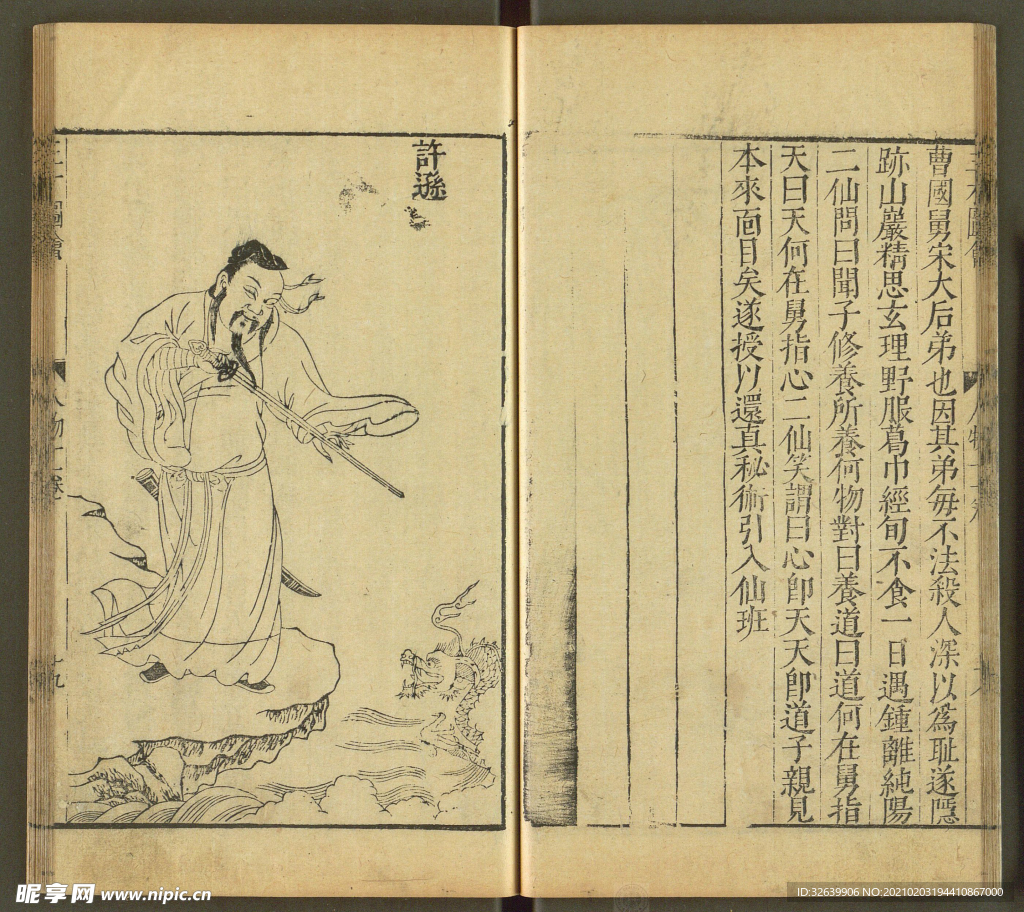 曹國舅宋大后弟也因其弟每不法殺人深以為耻遂隱
跡山巖精思玄理野服葛巾經旬不食一日遇鍾離純陽
二仙問曰聞子修養所養何物對曰養道曰道何在舅指
天曰天何在舅指心二仙笑謂曰心卽天天卽道子親見
本來面目矣遂授以還真秘術引入仙班
許遜
昵享网 www.nipic.cn
ID:32639906 NO:20210203194410867000